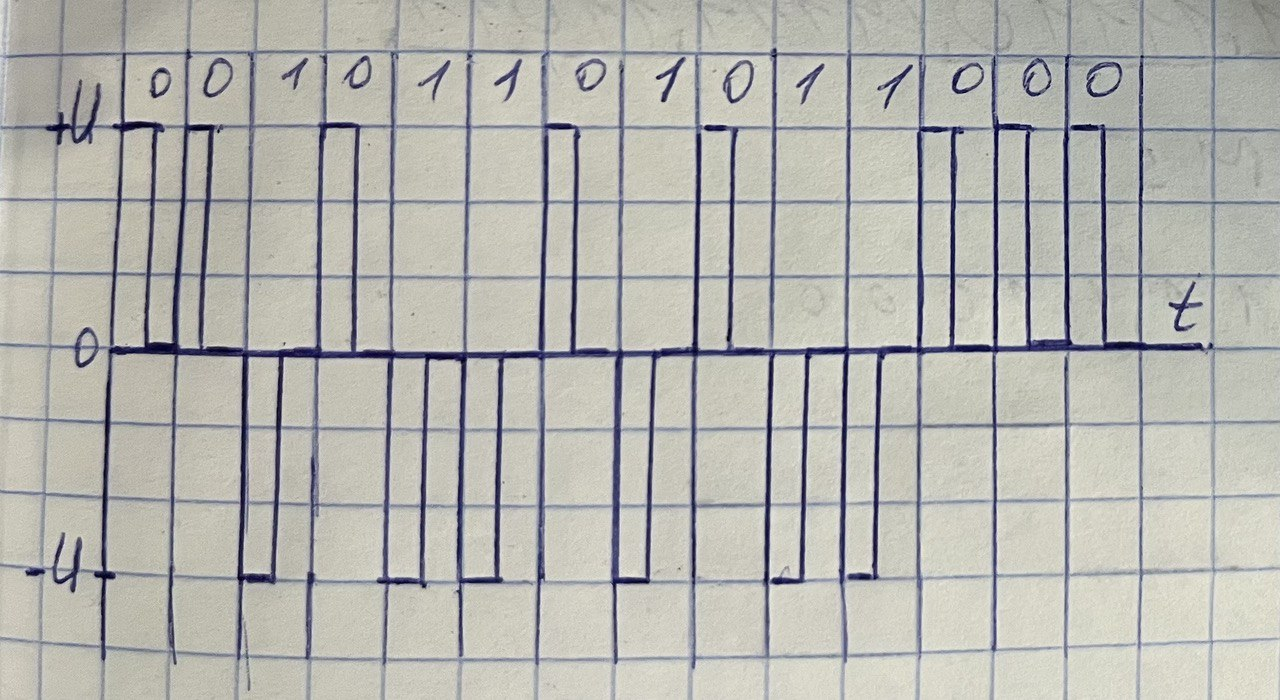 0 0 1 0 1 1 0 1 0 1 1 0 0 0
+U
t
0
-U